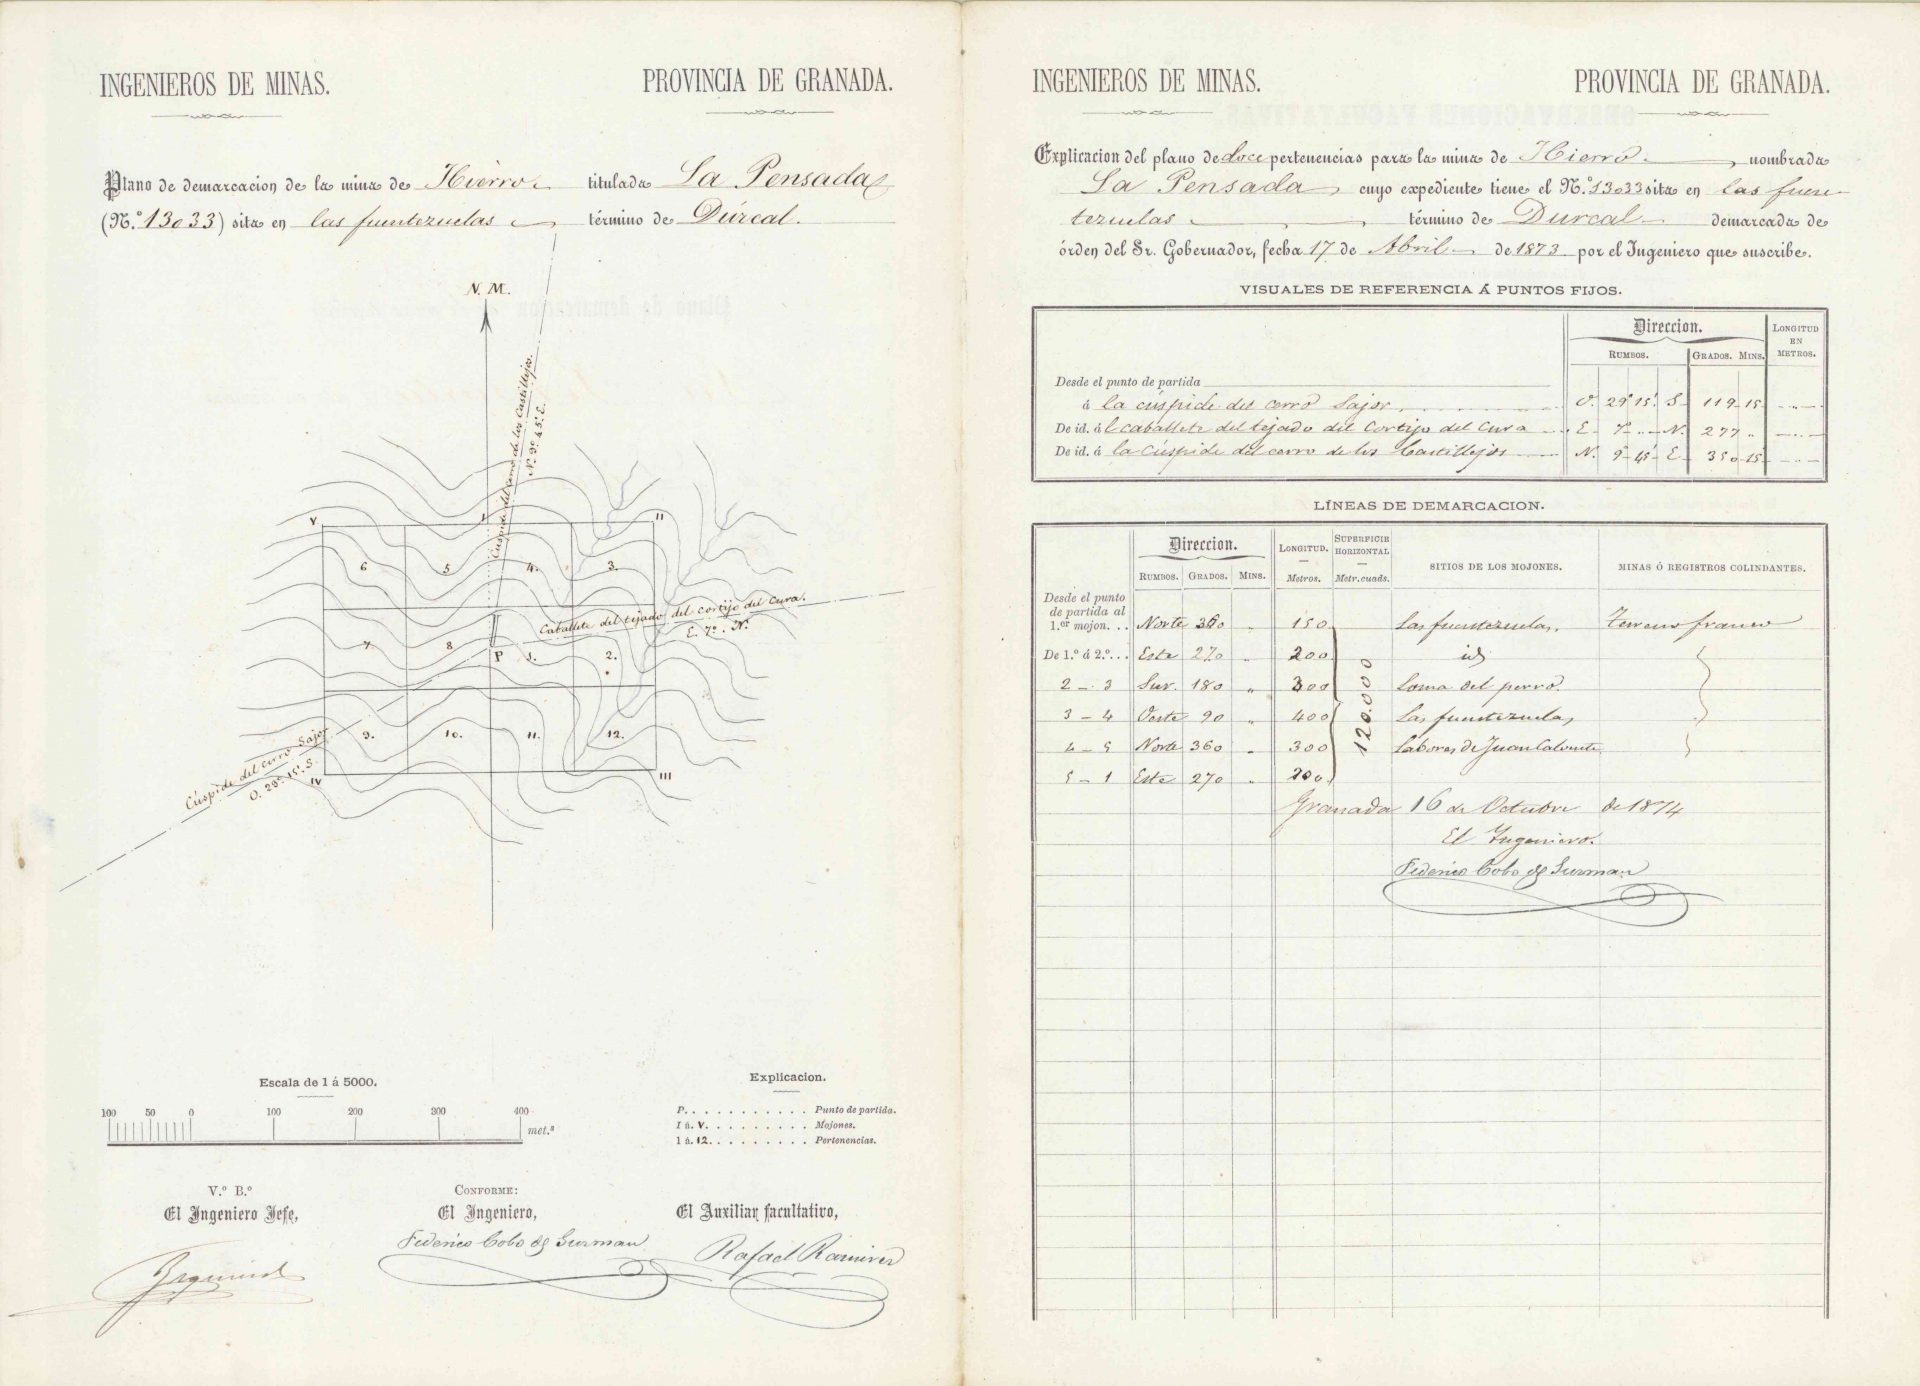 INGENIEROS DE MINAS. PROVINCIA DE GRANADA.
Plano de demarcacion de la mina de Hierro titulada La Pensada
(N.º 13033) sita en las fuentezuelas término de Dúrcal.
N. M.
Cúspide del cerro de los Castillejos.
N. 9º 45' E.
V I II
6 5 4. 3.
Caballete del tejado del cortijo del Cura.
E. 7º. N.
7 8 P 1. 2.
9. 10. 11. 12.
Cúspide del cerro Sajor
O. 29º 15'. S.
IV III
Escala de 1 á 5000.
100 50 0 100 200 300 400 met.s
Explicacion.
P. . . . . . . . . . . . Punto de partida.
I á. V. . . . . . . . . . Mojones.
1 á. 12. . . . . . . . . . Pertenencias.
V.º B.º
El Ingeniero Jefe,
CONFORME:
El Ingeniero,
Federico Cobo de Guzman
El Auxiliar facultativo,
Rafael Ramirez
INGENIEROS DE MINAS. PROVINCIA DE GRANADA.
Explicacion del plano de doce pertenencias para la mina de Hierro nombrada
La Pensada cuyo expediente tiene el N.º 13033 sita en las fuen-
tezuelas término de Durcal demarcada de
órden del Sr. Gobernador, fecha 17 de Abril de 1873 por el Ingeniero que suscribe.
VISUALES DE REFERENCIA Á PUNTOS FIJOS.
Direccion. LONGITUD EN METROS.
RUMBOS. GRADOS. MINS.
Desde el punto de partida
á la cúspide del cerro Sajor O. 29º 15'. S 119 15
De id. á l caballete del tejado del Cortijo del Cura E 7º " N. 277 "
De id. á la Cúspide del cerro de los Castillejos N. 9º 45' E 350 15
LÍNEAS DE DEMARCACION.
Direccion. LONGITUD. SUPERFICIE HORIZONTAL SITIOS DE LOS MOJONES. MINAS Ó REGISTROS COLINDANTES.
RUMBOS. GRADOS. MINS. Metros. Metr. cuads.
Desde el punto
de partida al
1.er mojon. . . Norte 360 " 150 Las fuentezuelas. Terreno franco
De 1.º á 2.º . . . Este 270 " 200 id
2 - 3 Sur. 180 " 300 Loma del perro.
3 - 4 Oeste 90 " 400 Las fuentezuelas
120.000
4 - 5 Norte 360 " 300 Labores de Juan
5 - 1 Este 270 " 200
Granada 16 de Octubre de 1874
El Ingeniero.
Federico Cobo de Guzman